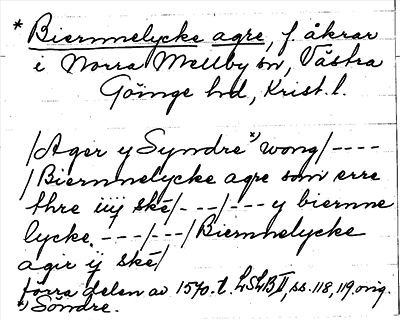 * Biernnelycke agre, f. åkrar
i Norra Mellby sn, Västra
Göinge hd, Krist. l.
/Ager y Syndre *) wong/----
/Biernnelycke agre som erre
thre iiij skē/---/--- y biernne
lycke. ---/---/Biernnelycke
agir ij skē/
förra delen av 1570. t. LSLB II, ss. 118, 119 orig.
*) Söndre.